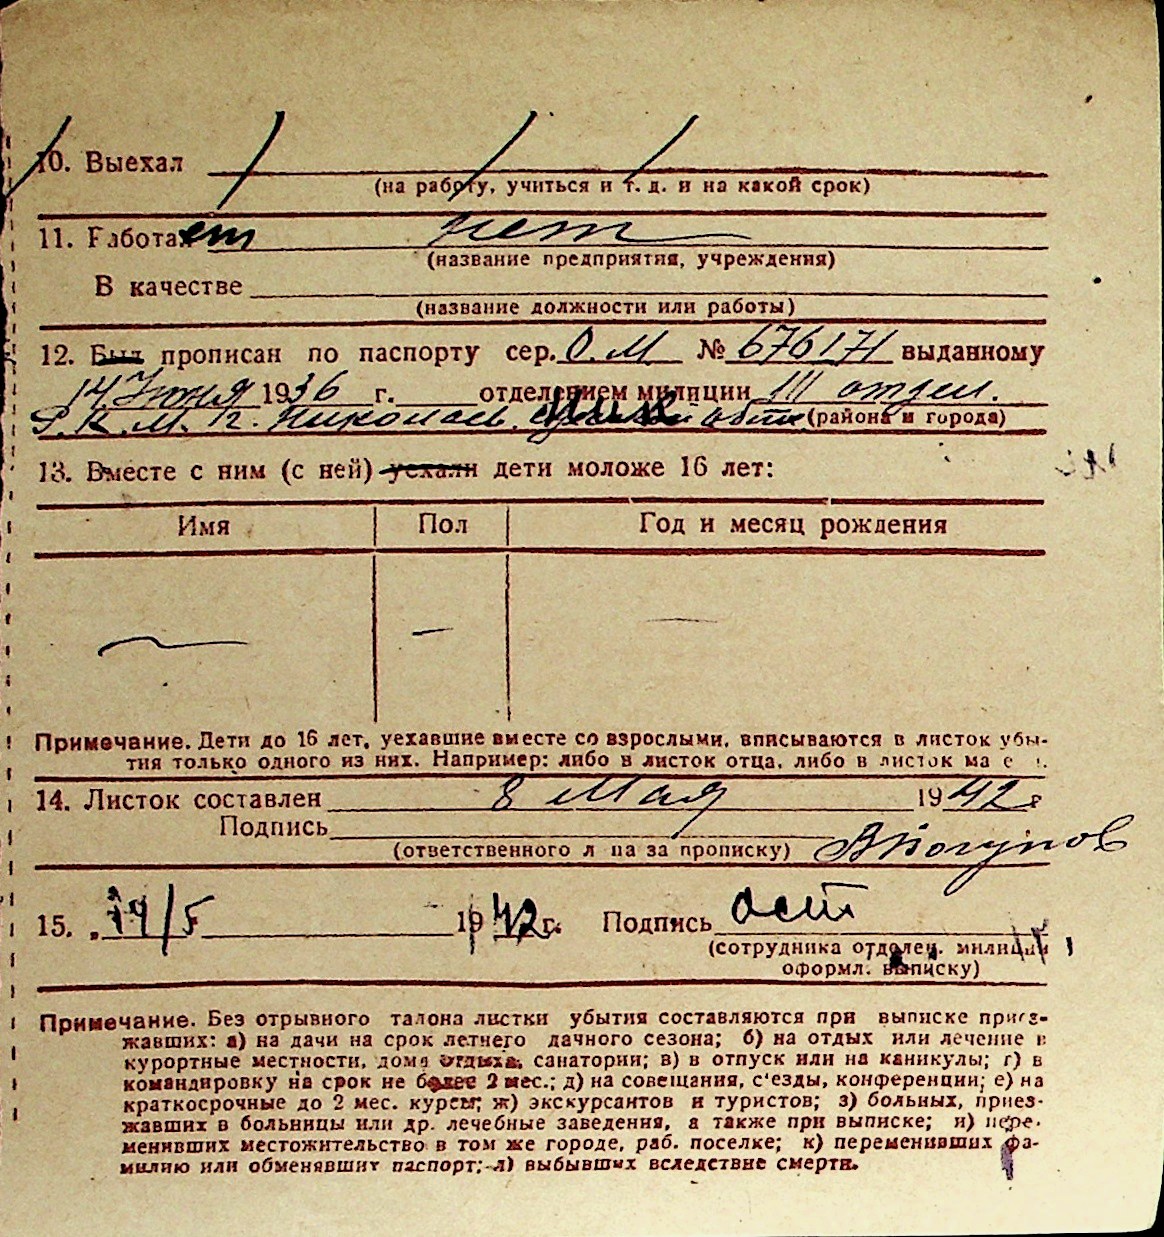 10. Выехал
(на работу, учиться и т. д. и на какой срок)
11. Работает нет
(название предприятия, учреждения)
В качестве
(название должности или работы)
12. Был прописан по паспорту сер. О. М № 676171 выданному
14 Июня 1936 г. отделением милиции III отдел.
Р. К. М. Г. Николаев. обл (района и города)
13. Вместе с ним (с ней) уехали дети моложе 16 лет:
Имя Пол Год и месяц рождения
— — —
Примечание. Дети до 16 лет, уехавшие вместе со взрослыми, вписываются в листок убы-
тия только одного из них. Например: либо в листок отца, либо в листок
14. Листок составлен 8 Мая 1942 г
Подпись
(ответственного за прописку)
15. 14/5 1942 г. Подпись
(сотрудника отделен. милиции
оформл. выписку)
Примечание. Без отрывного талона листки убытия составляются при выписке приез-
жавших: а) на дачи на срок летнего дачного сезона; б) на отдых или лечение в
курортные местности, дома отдыха, санатории; в) в отпуск или на каникулы; г) в
командировку на срок не более 2 мес.; д) на совещания, с'езды, конференции; е) на
краткосрочные до 2 мес. курсы; ж) экскурсантов и туристов; з) больных, приез-
жавших в больницы или др. лечебные заведения, а также при выписке; и) пере-
менивших местожительство в том же городе, раб. поселке; к) переменивших фа-
милию или обменявших паспорт; л) выбывших вследствие смерти.